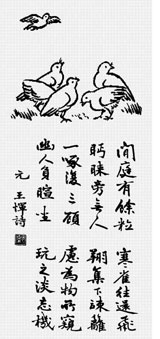 間庭有餘粒 寒雀往還飛
眄睞旁無人 翔集下疎籬
一啄復三顧 慮為物所窺
幽人負暄坐 玩之淡忘機
元 王惲詩